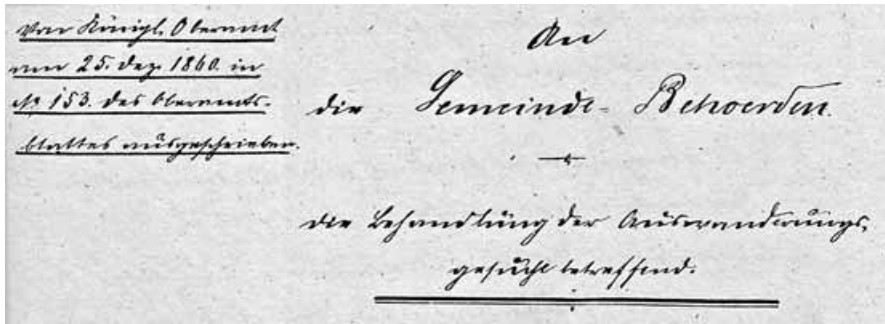 Vom Königl. Oberamt
vom 25. Dez. 1860. in
No 153. des Oberamts-
blattes ausgeschrieben.
An
die Gemeinde-Behoerden.
die Behandlung der Auswanderungs-
gesuche betreffend.